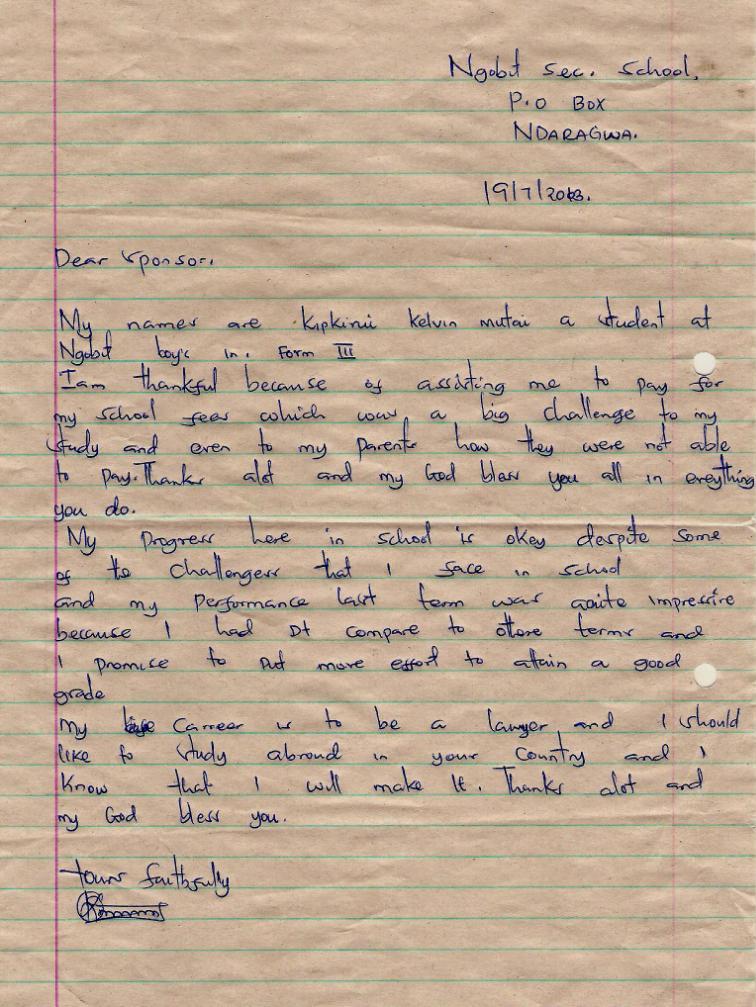 Ngobit sec. school,
P.O BOX
NDARAGWA.
19/7/2013.
Dear Sponsor,
My names are Kipkirui Kelvin mutai a student at
Ngobit boys in. Form III
I am thankful because of assisting me to pay for
my school fees which was a big challenge to my
study and even to my parents how they were not able
to pay. Thanks alot and my God bless you all in ereything
you do.
My progress here in school is okey despite some
of the challengess that I face in school
and my performance last term was qoite impressire
because I had D+ compare to othere terms and
I promise to put more effort to attain a good
grade
My carreer is to be a lawyer and I should
like to study abroud in your country and I
know that I will make it. Thanks alot and
my God bless you.
Yours faithfully